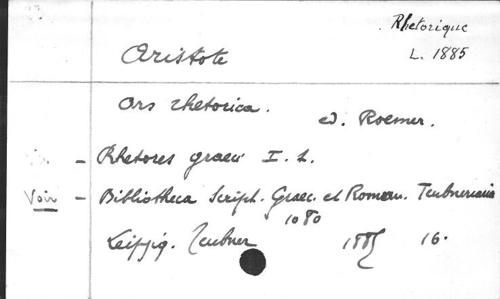 Rhetorique
L. 1885
Aristote
Ars rhetorica. ed. Roemer.
- Rhetores graeci I. 2.
Voir - Bibliotheca Script. Graec. et Roman. Teubneriana
1080
Leipzig. Teubner 1885 16.